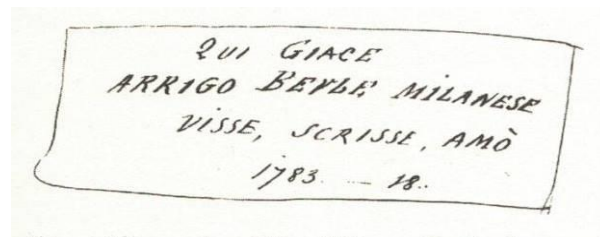 QUI GIACE
ARRIGO BEYLE MILANESE
VISSE, SCRISSE, AMÒ
1783. — 18..